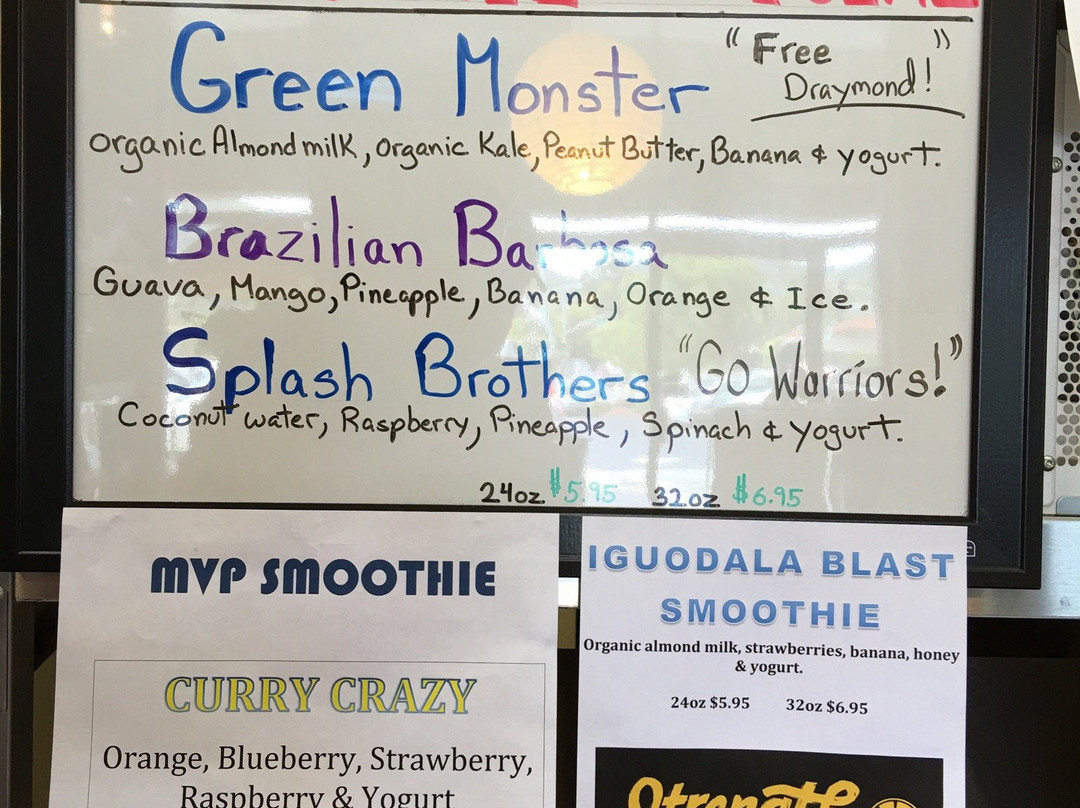 Green Monster
"Free Draymond!"
Organic Almond milk, organic Kale, Peanut Butter, Banana & yogurt.
Brazilian Barbosa
Guava, Mango, Pineapple, Banana, Orange & Ice.
Splash Brothers "Go Warriors!"
Coconut water, Raspberry, Pineapple, Spinach & yogurt.
24oz $5.95 32oz $6.95
MVP SMOOTHIE
CURRY CRAZY
Orange, Blueberry, Strawberry,
Raspberry & Yogurt
IGUODALA BLAST
SMOOTHIE
Organic almond milk, strawberries, banana, honey
& yogurt.
24oz $5.95 32oz $6.95